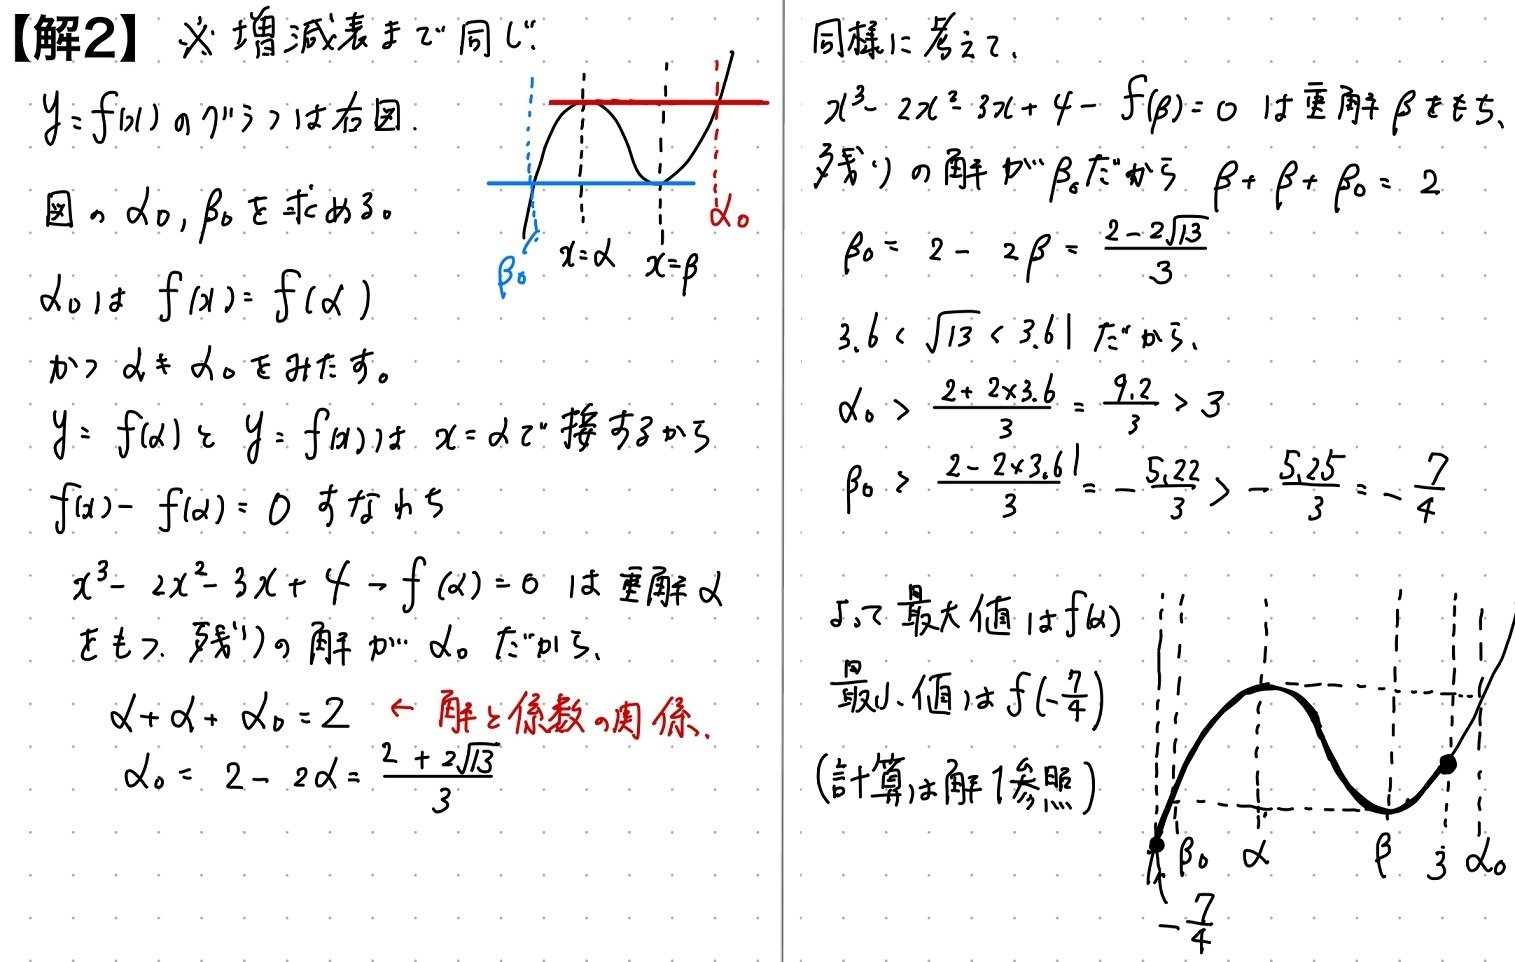 【解2】 ※ 増減表まで同じ.
y=f(x) のグラフは右図.
図の α₀, β₀ を求める。
β₀
x=α
x=β
α₀
α₀は f(x)=f(α)
かつ α≠α₀ をみたす。
y=f(α) と y=f(x) は x=αで接するから
f(x)-f(α)=0 すなわち
x³-2x²-3x+4-f(α)=0 は重解α
をもつ. 残りの解が α₀ だから、
α+α+α₀=2 ← 解と係数の関係.
α₀ = 2-2α = (2+2√13)/3
同様に考えて、
x³-2x²-3x+4-f(β)=0 は重解βをもち、
残りの解がβ₀だから β+β+β₀=2
β₀ = 2-2β = (2-2√13)/3
3.6 < √13 < 3.61 だから、
α₀ > (2+2×3.6)/3 = 9.2/3 > 3
β₀ > (2-2×3.61)/3 = -5.22/3 > -5.25/3 = -7/4
よって 最大値は f(α)
最小値は f(-7/4)
(計算は解1参照)
β₀ α β 3 α₀
-7/4